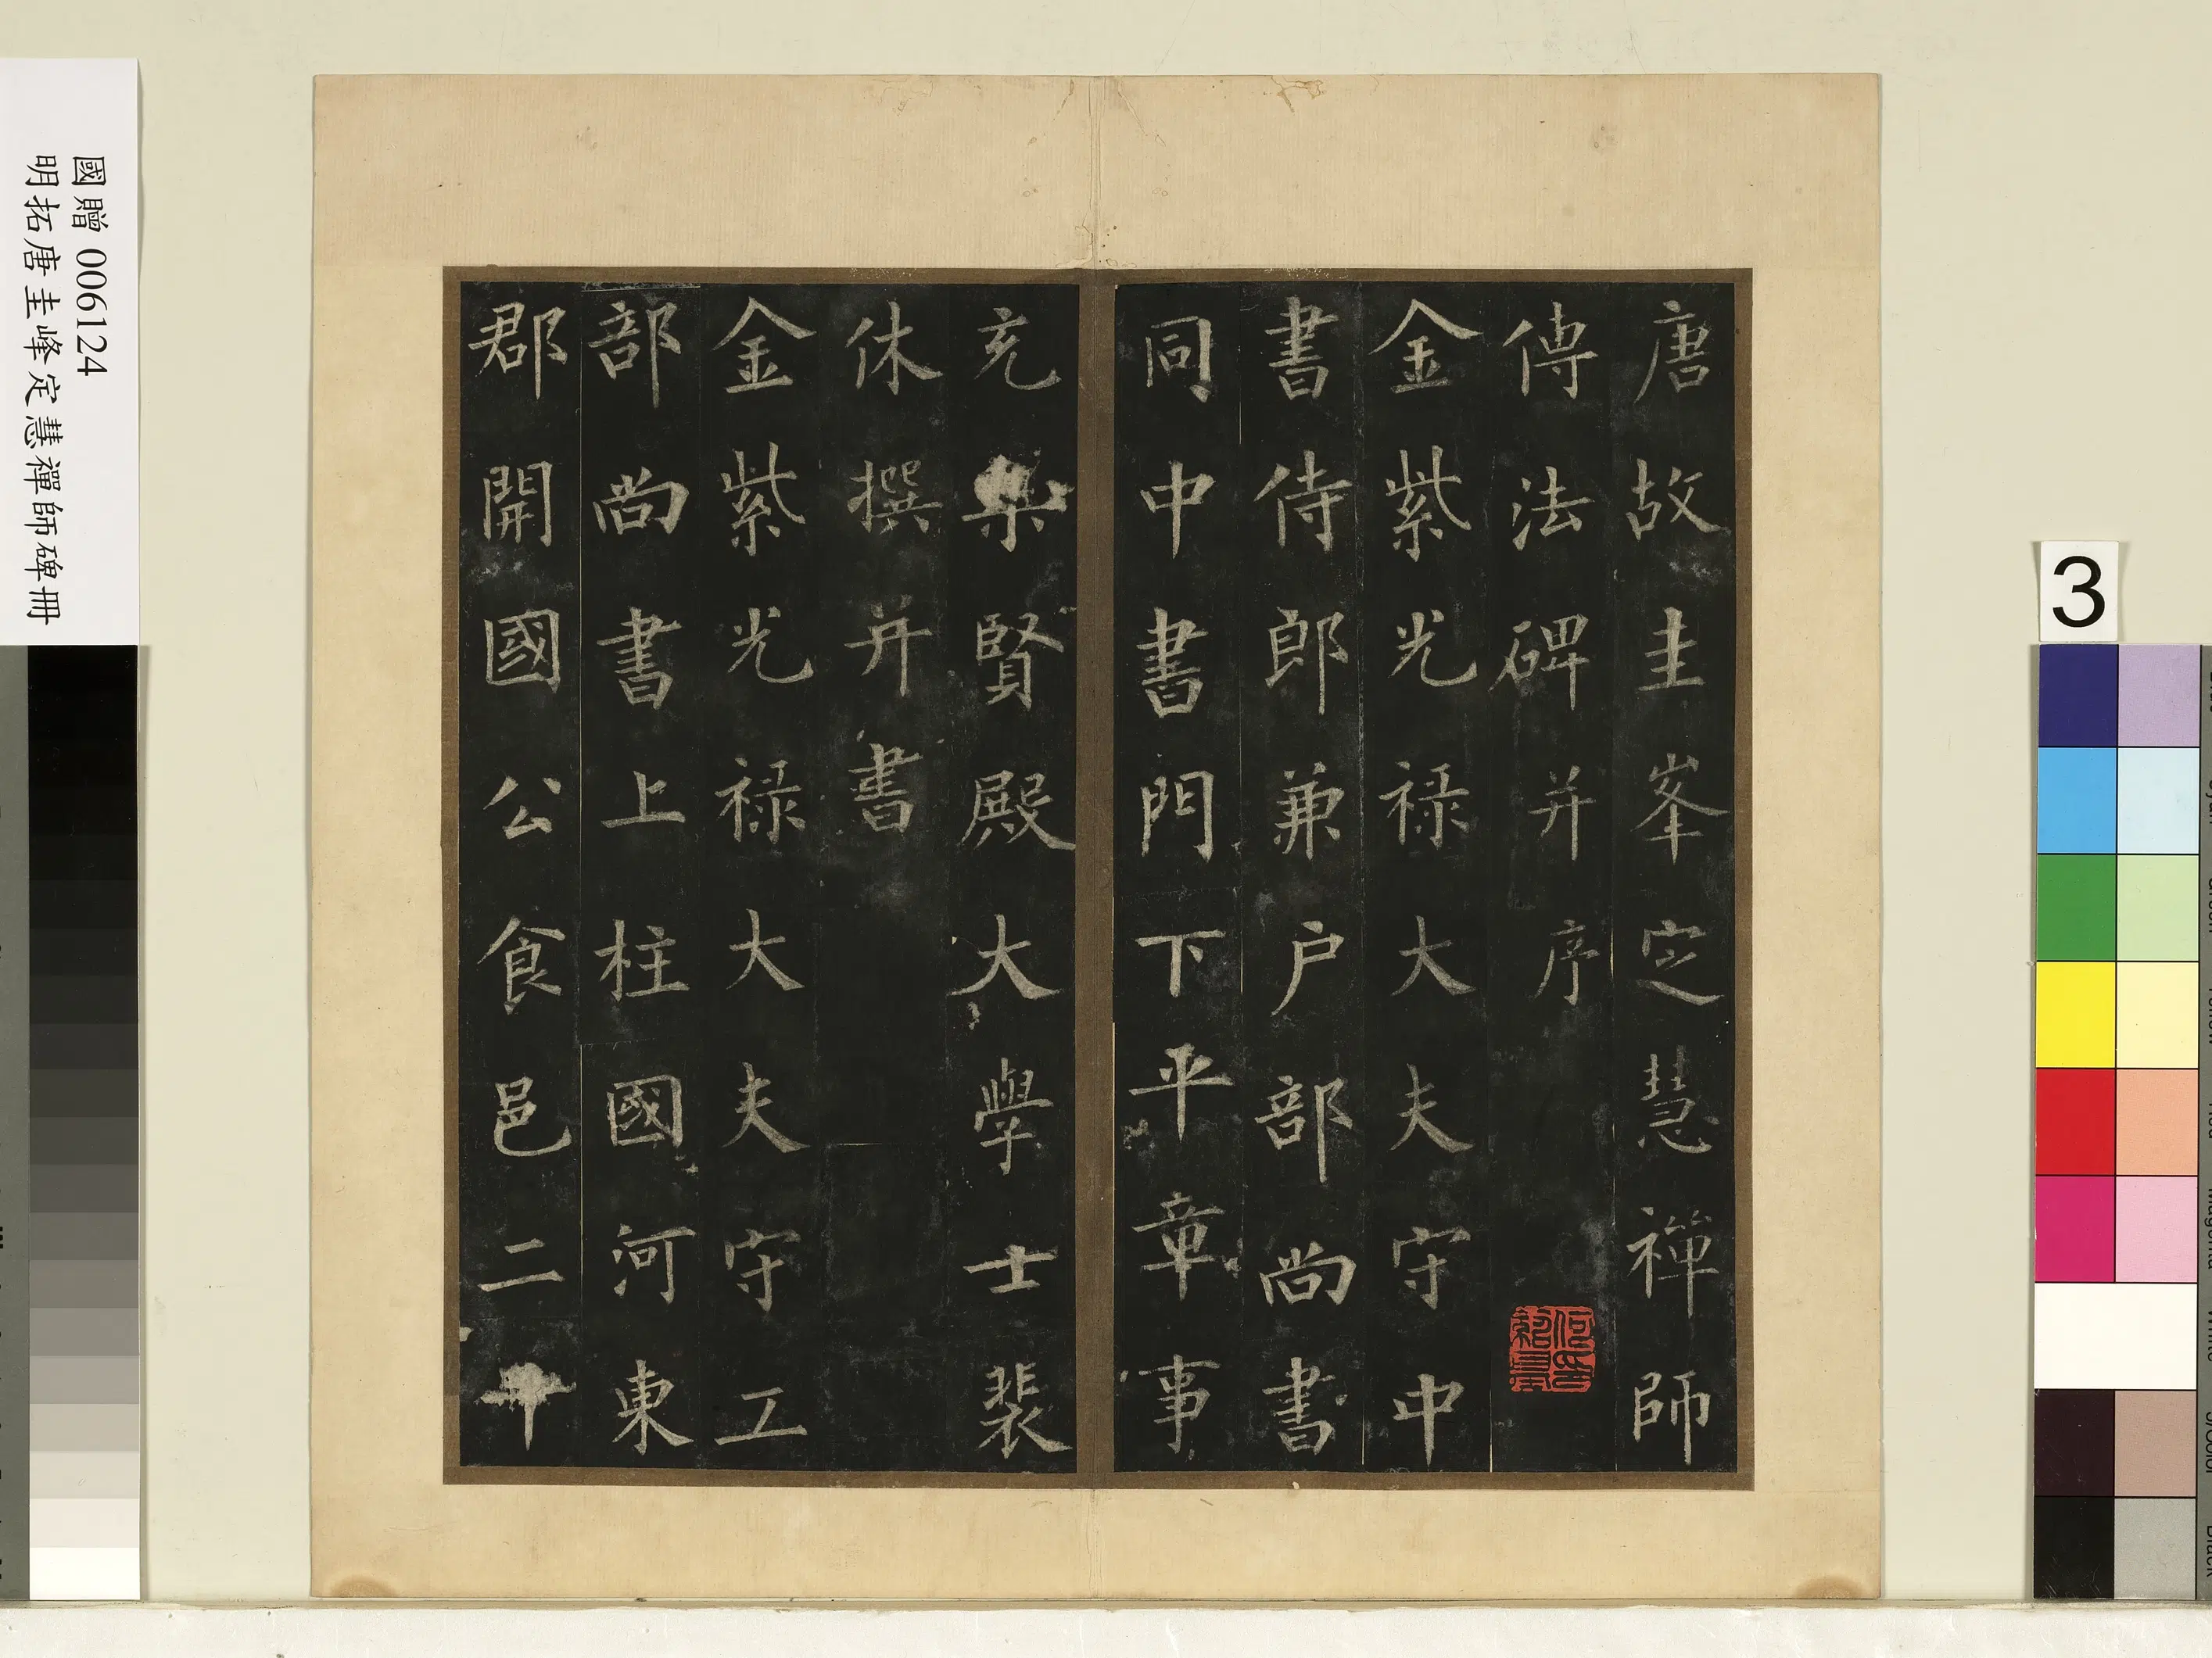 唐故圭峯定慧禪師
傳法碑并序
金紫光禄大夫守中
書侍郎兼户部尚書
同中書門下平章事
充集賢殿大學士裴
休撰并書
金紫光禄大夫守工
部尚書上柱國河東
郡開國公食邑二千
國贈 006124
明拓唐圭峰定慧禪師碑冊
3